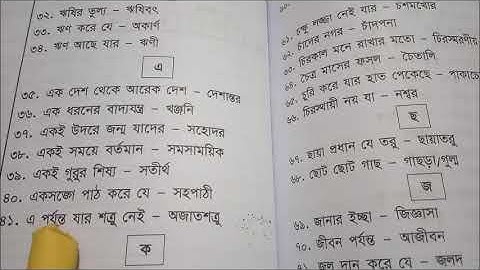 ৩২. ঋষির তুল্য – ঋষিবৎ
৩৩. ঋণ করে যে – অকার্ণ
৩৪. ঋণ আছে যার – ঋণী
এ
৩৫. এক দেশ থেকে আরেক দেশ – দেশান্তর
৩৬. এক ধরনের বাদ্যযন্ত্র – খঞ্জনি
৩৭. একই উদরে জন্ম যাদের – সহোদর
৩৮. একই সময়ে বর্তমান – সমসাময়িক
৩৯. একই গুরুর শিষ্য – সতীর্থ
৪০. একসঙ্গে পাঠ করে যে – সহপাঠী
৪১. এ পর্যন্ত যার শত্রু নেই – অজাতশত্রু
ক
৬১. চক্ষু লজ্জা নেই যার – চশমখোর
৬২. চাঁদের নগর – চাঁদপনা
৬৩. চিরকাল মনে রাখার মতো – চিরস্মরণীয়
৬৪. চৈত্র মাসের ফসল – চৈতালি
৬৫. চুরি করে যার হাত পেকেছে –
৬৬. চিরস্থায়ী নয় যা – নশ্বর
ছ
৬৭. ছায়া প্রধান যে তরু – ছায়াতরু
৬৮. ছোট ছোট গাছ – গাছড়া/গুল্ম
জ
৬৯. জানার ইচ্ছা – জিজ্ঞাসা
৭০. জীবন পর্যন্ত – আজীবন
৭১. জল দান করে যে – জলদ